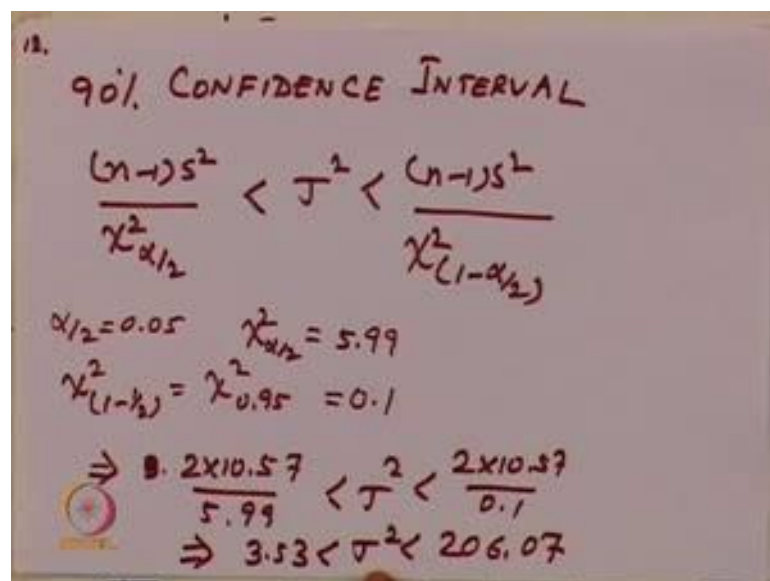 12.
90% CONFIDENCE INTERVAL
(n-1)s² / χ²_{α/2} < σ² < (n-1)s² / χ²_{(1-α/2)}
α/2 = 0.05 χ²_{α/2} = 5.99
χ²_{(1-α/2)} = χ²_{0.95} = 0.1
⇒ 2×10.57 / 5.99 < σ² < 2×10.57 / 0.1
⇒ 3.53 < σ² < 206.07